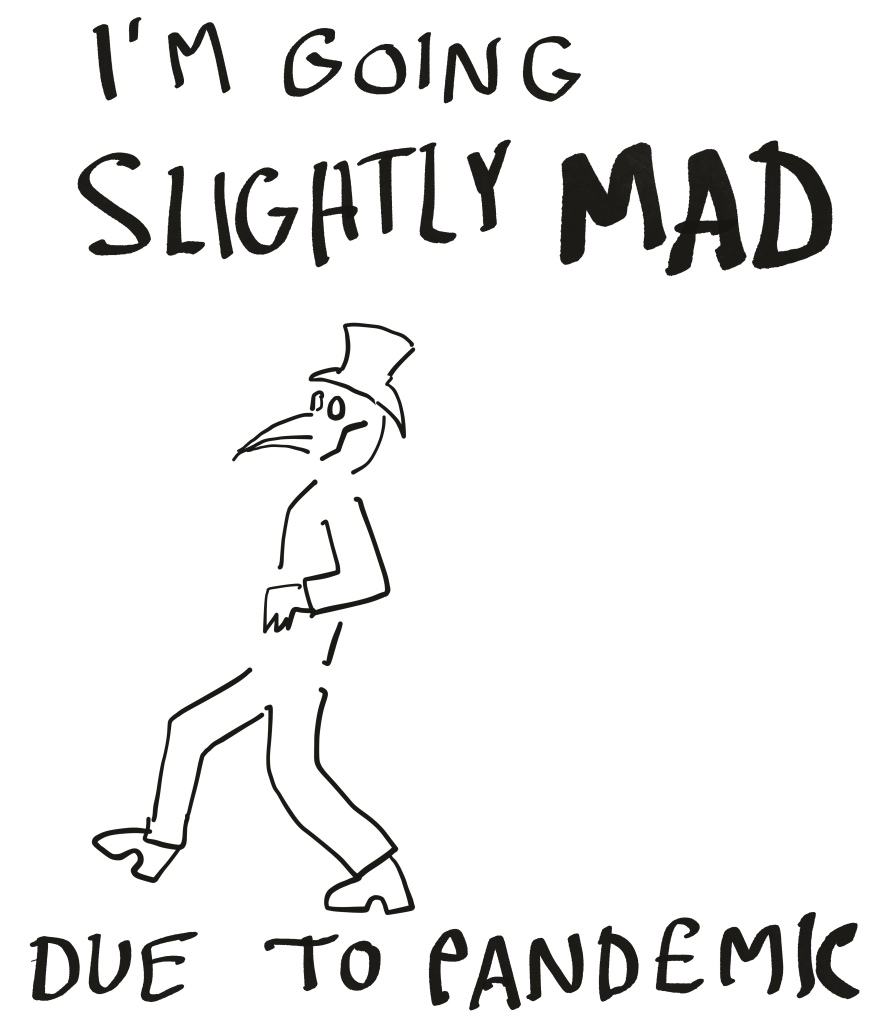 I'M GOING
SLIGHTLY MAD
DUE TO PANDEMIC